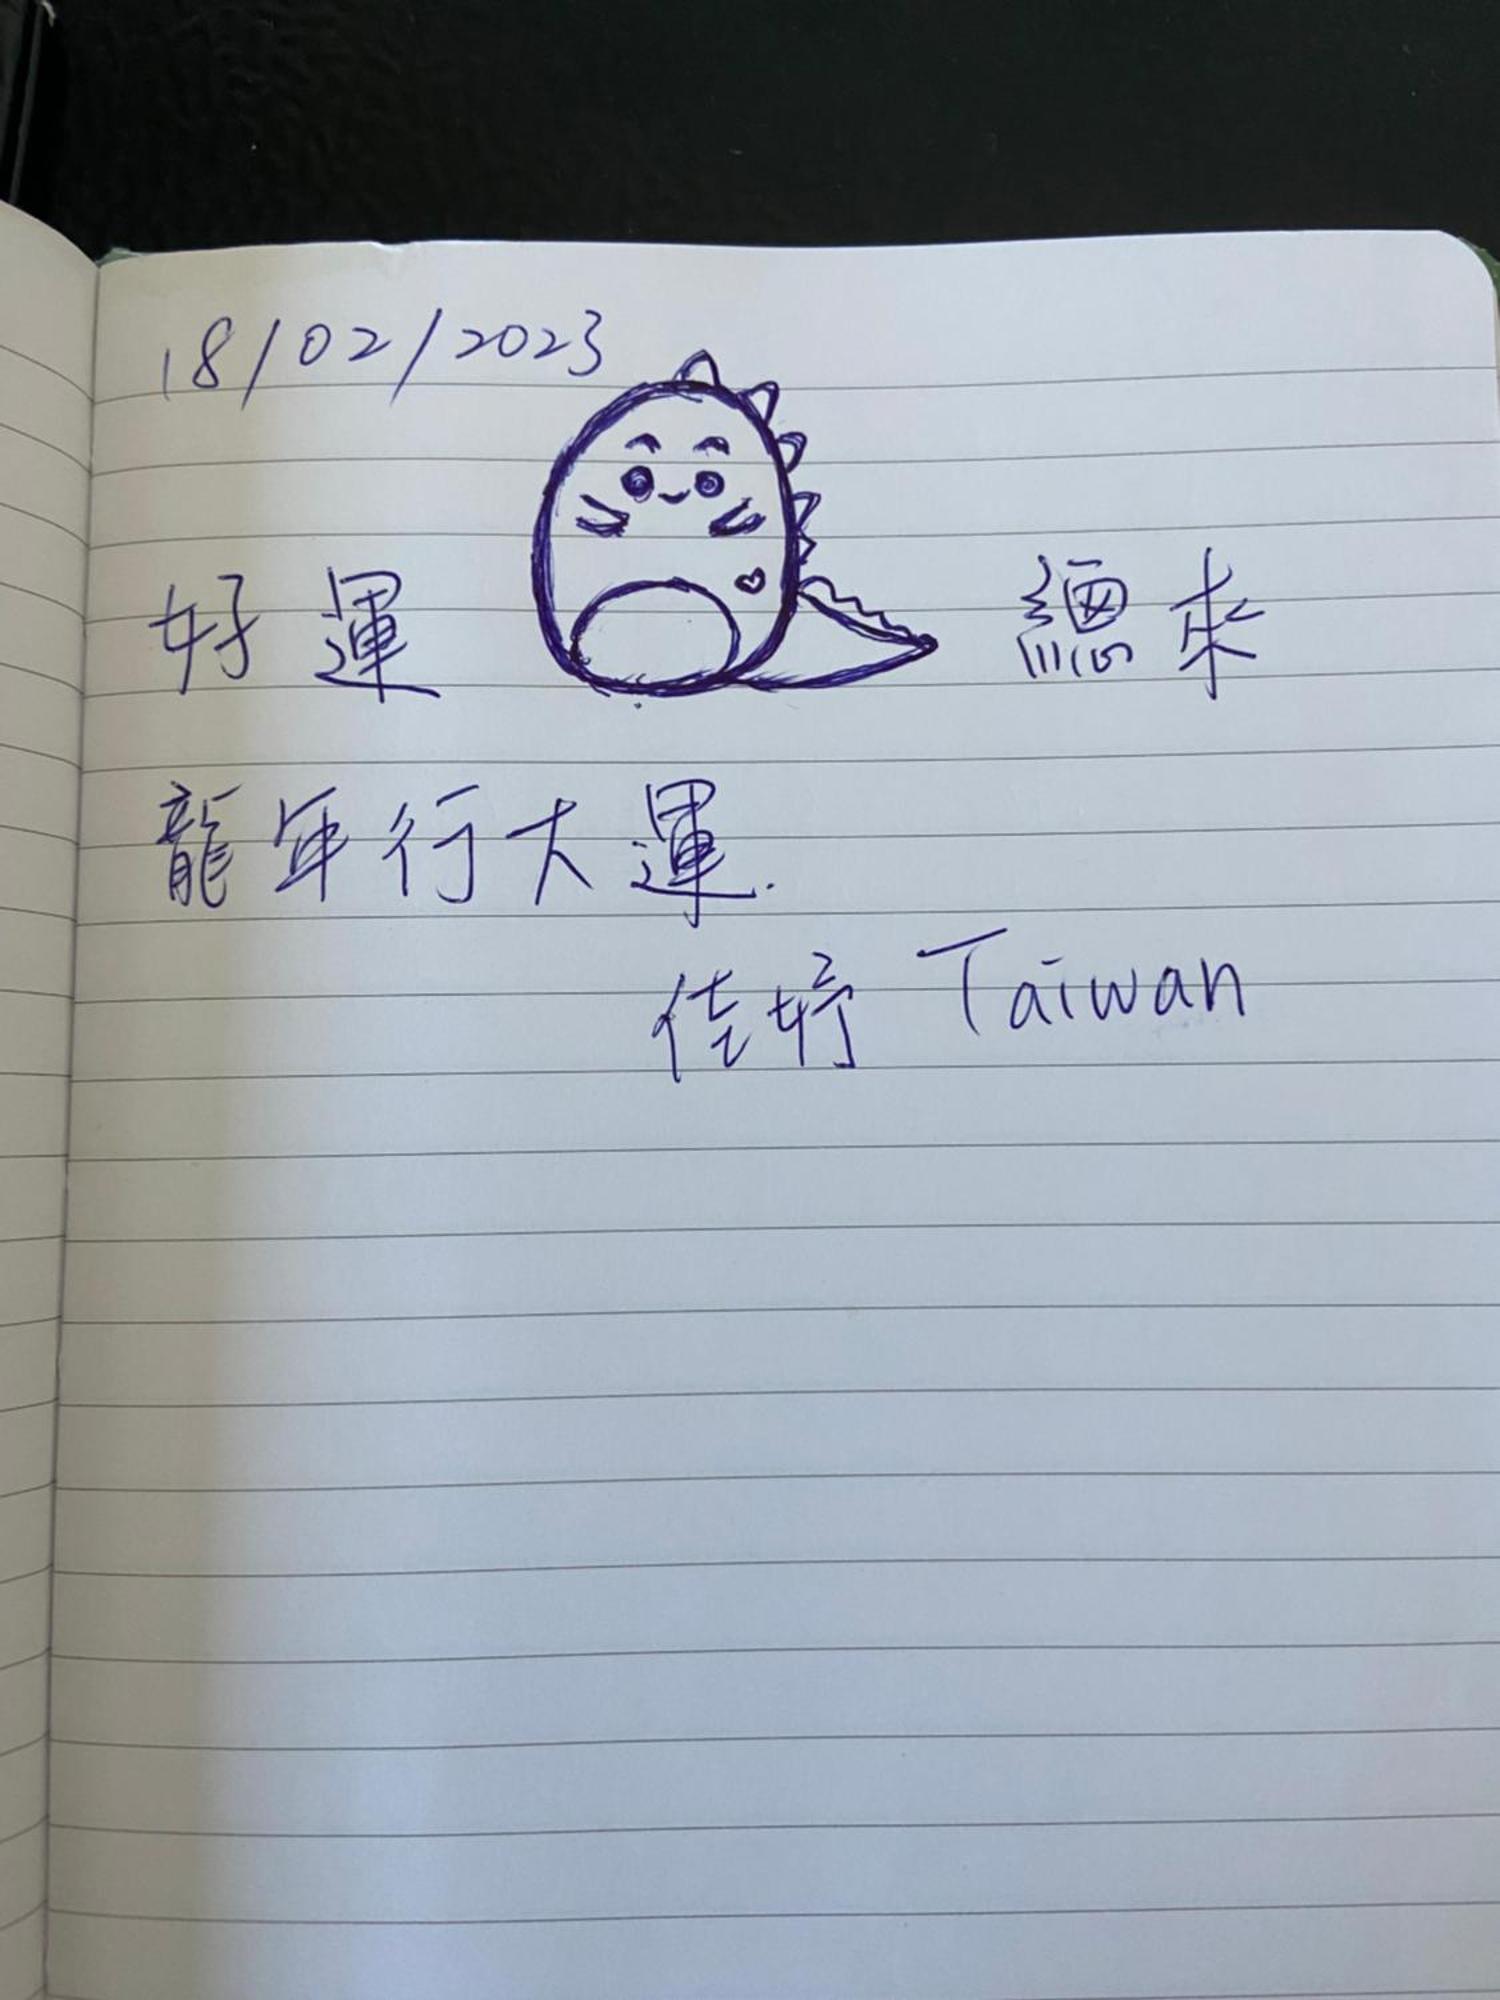 18/02/2023
好運 總來
龍年行大運.
佳婷 Taiwan